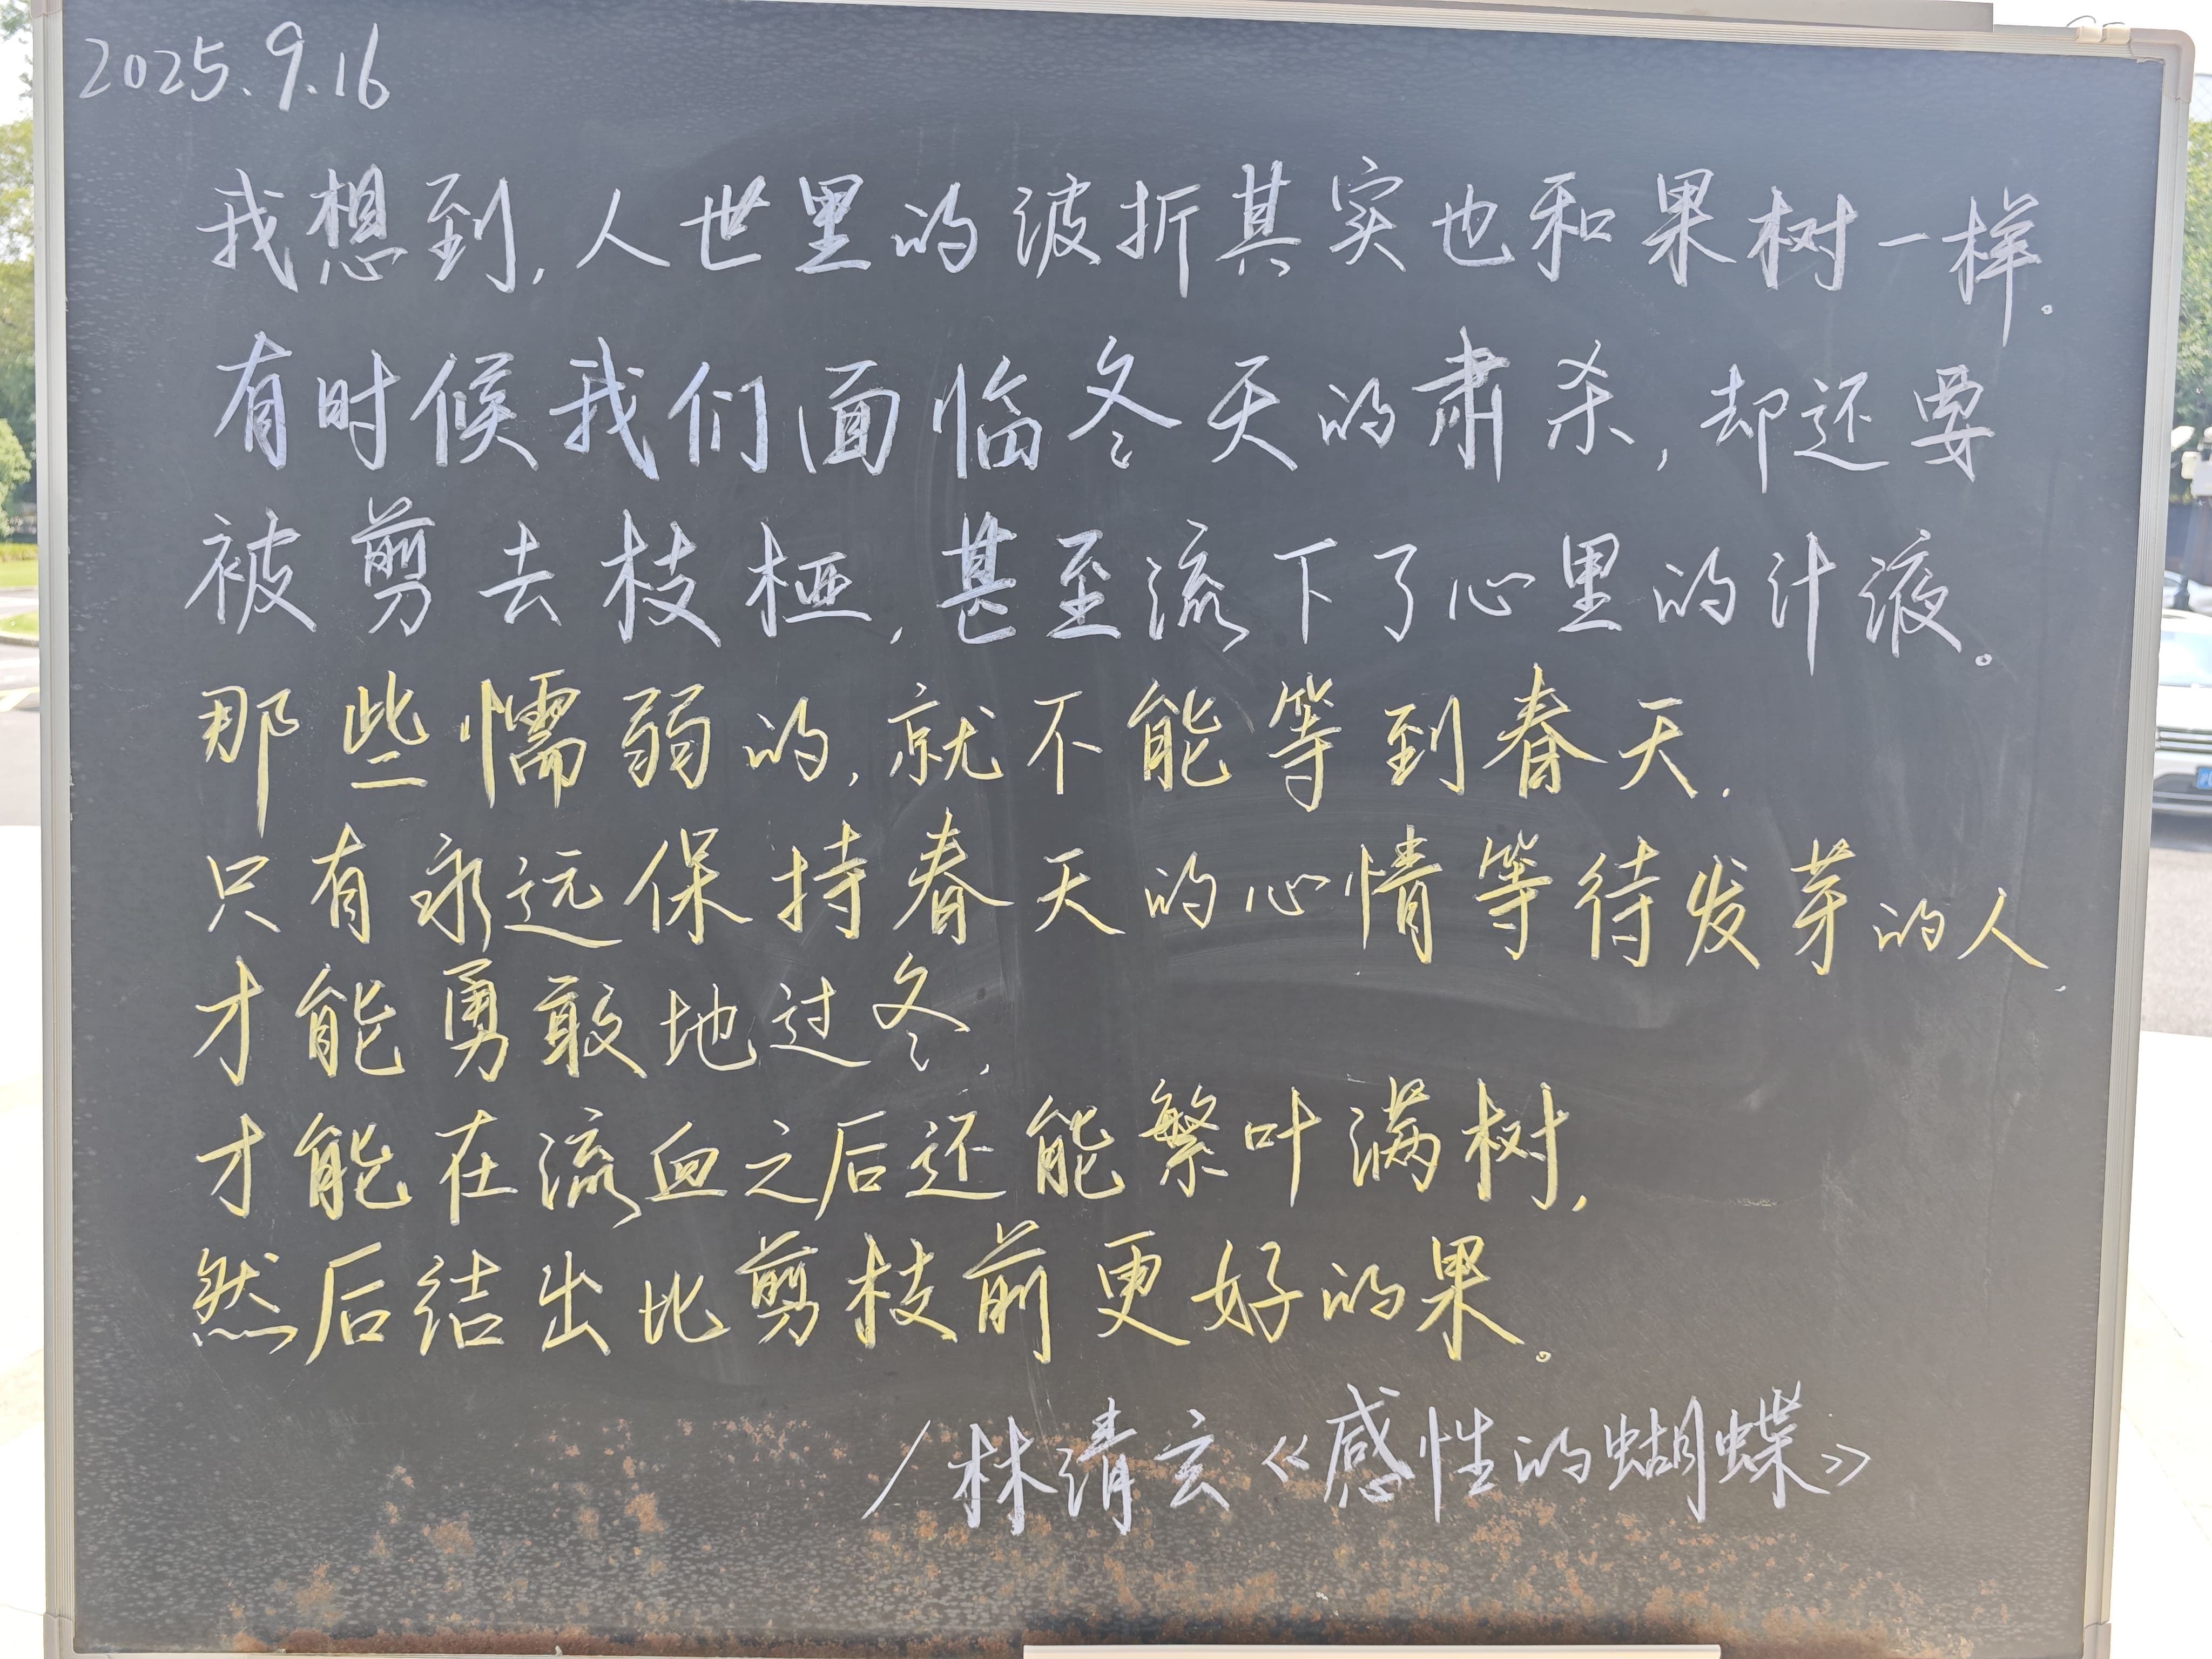 2025.9.16
我想到,人世里的波折其实也和果树一样.
有时候我们面临冬天的肃杀,却还要
被剪去枝桠,甚至流下了心里的汁液。
那些懦弱的,就不能等到春天.
只有永远保持春天的心情等待发芽的人,
才能勇敢地过冬,
才能在流血之后还能繁叶满树,
然后结出比剪枝前更好的果。
/林清玄《感性的蝴蝶》